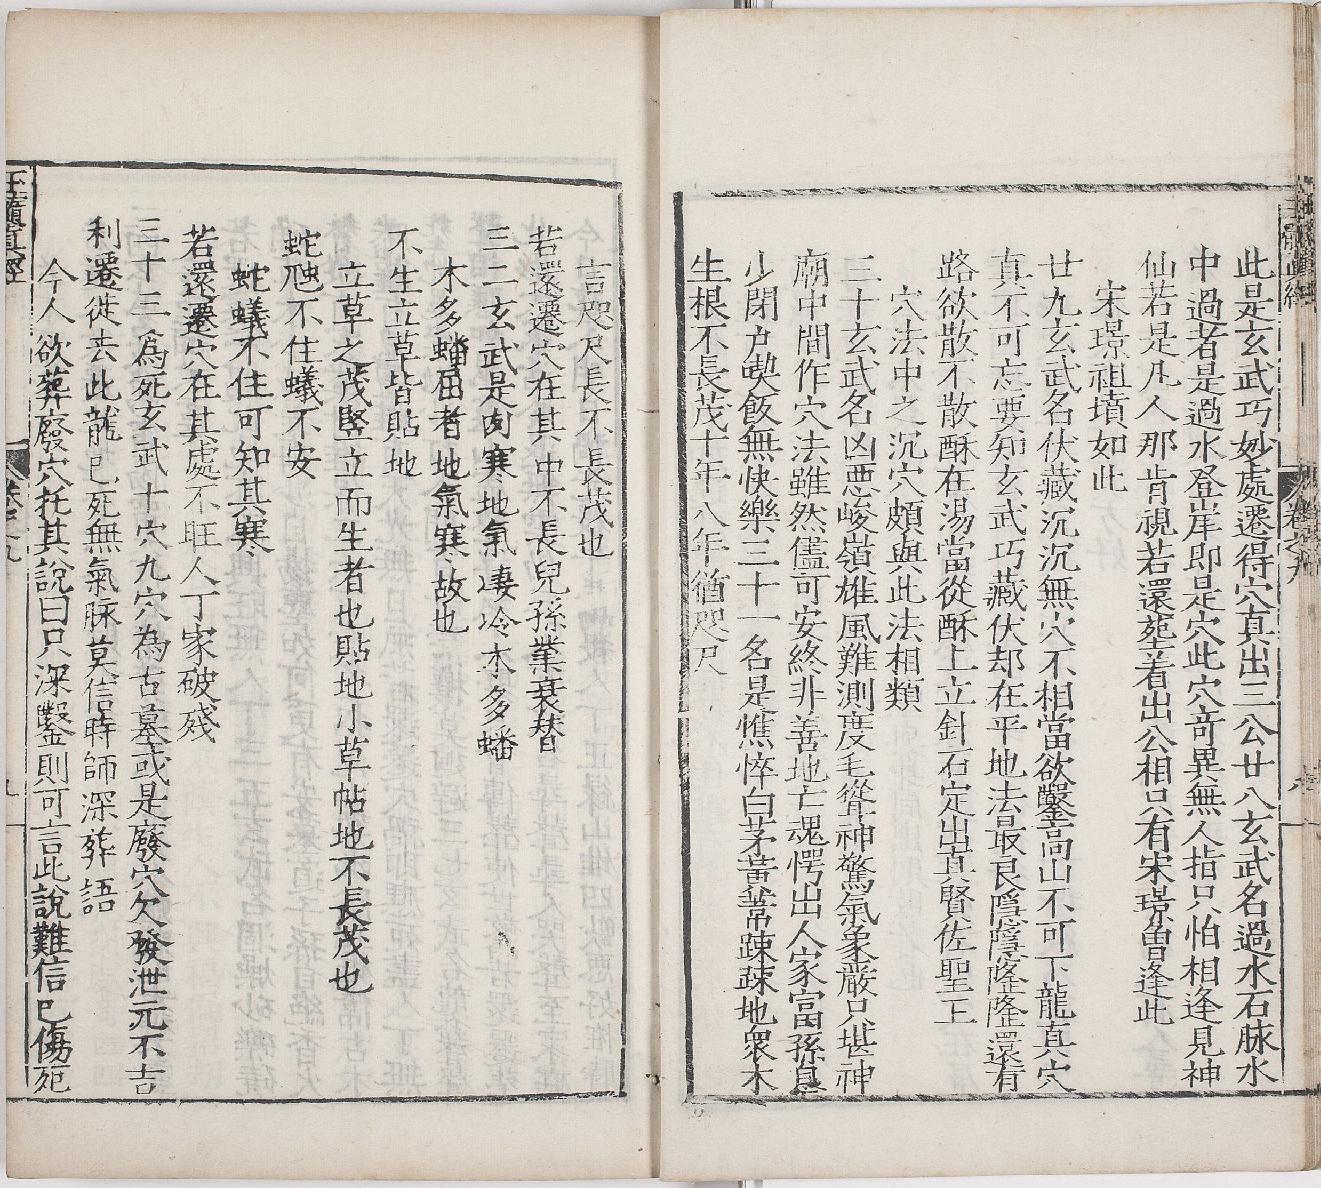 此是玄武巧妙處遷得穴真出三公廿八玄武名過水石脉水
中過者是過水登岸即是穴此穴竒異無人指只怕相逢見神
仙若是凡人那肯視若還塟着出公相只有宋璟曽逢此
宋璟祖墳如此
廿九玄武名伏藏沉沉無穴不相當欲鑿高山不可下龍真穴
真不可忘要知玄武巧藏伏却在平地法最良隱隱隆隆還有
路欲散不散酥在湯當從酥上立針石定出真賢佐聖王
穴法中之沉穴頗與此法相類
三十玄武名凶惡峻嶺雄風難測度毛聳神驚氣象嚴只堪神
廟中間作穴法雖然儘可安終非善地亡魂愕出人家富孫息
少閉户喫飯無快樂三十一名是憔悴白茅黄茅踈踈地衆木
生根不長茂十年八年猶咫尺
言咫尺長不長茂也
若還遷穴在其中不長兒孫業衰替
三二玄武是肉寒地氣凄冷木多蟠
木多蟠屈者地氣寒故也
不生立草皆貼地
立草之茂竪立而生者也貼地小草帖地不長茂也
蛇虺不住蟻不安
蛇蟻不住可知其寒
若還遷穴在其處不旺人丁家破殘
三十三為死玄武十穴九穴為古墓或是廢穴久發泄元不吉
利遷徙去此龍已死無氣脉莫信時師深葬語
今人欲葬廢穴托其說曰只深鑿則可言此說難信已傷死
玉髓真經
卷之九
九